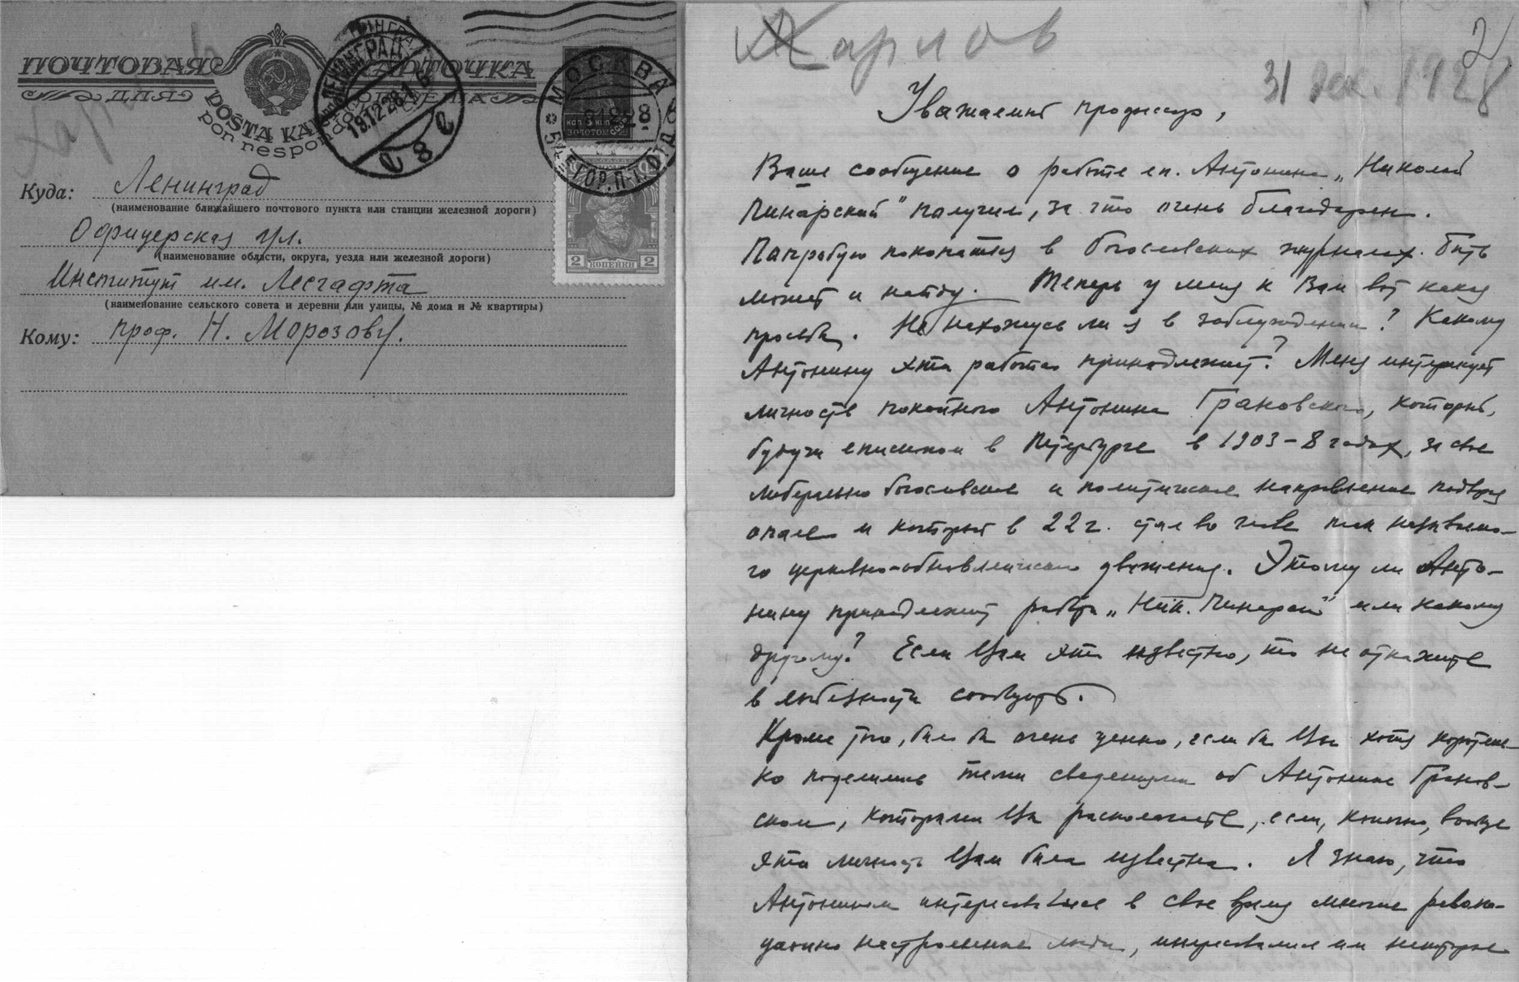 ПОЧТОВАЯ КАРТОЧКА
ДЛЯ
POSTA KA
por respon
ЛЕНИНГРАД
19.12.28
МОСКВА
КОП 3 КОП
ЗОЛОТОМ
2 КОПЕЙКИ 2
Куда: Ленинград
(наименование ближайшего почтового пункта или станции железной дороги)
Офицерская ул.
(наименование области, округа, уезда или железной дороги)
Институт им. Лесгафта
(наименование сельского совета и деревни или улицы, № дома и № квартиры)
Кому: проф. Н. Морозову.
Жарлов
2
31 дек. 1928
Уважаемый профессор,
Ваше сообщение о работе еп. Антонина „Николай
Пинарский" получил, за что очень благодарен.
Попробую покопаться в богословских журналах. Быть
может и найду. Теперь у меня к Вам вот какая
просьба. Не нахожусь ли я в заблуждении? Какому
Антонину эта работа принадлежит? Меня интересует
личность покойного Антонина Грановского, который,
будучи епископом в Петербурге в 1903-8 годах, за свое
либерально богословское и политическое направление подвергся
опале и который в 22 г. стал во главе так называемо-
го церковно-обновленческого движения. Этому ли Анто-
нину принадлежит работа „Ник. Пинарский" или какому
другому? Если Вам это известно, то не откажите
в любезности сообщить.
Кроме того, было бы очень ценно, если бы Вы хотя коротень-
ко поделились теми сведениями об Антонине Гранов-
ском, которыми Вы располагаете, если, конечно, вообще
эта личность Вам была известна. Я знаю, что
Антонином интересовались в свое время многие револю-
ционно настроенные люди, интересовались им некоторые